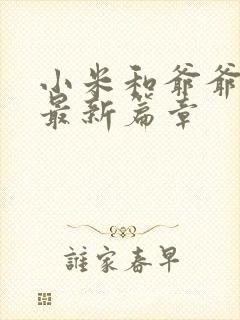 小米和爷爷
最新篇章
誰家春早